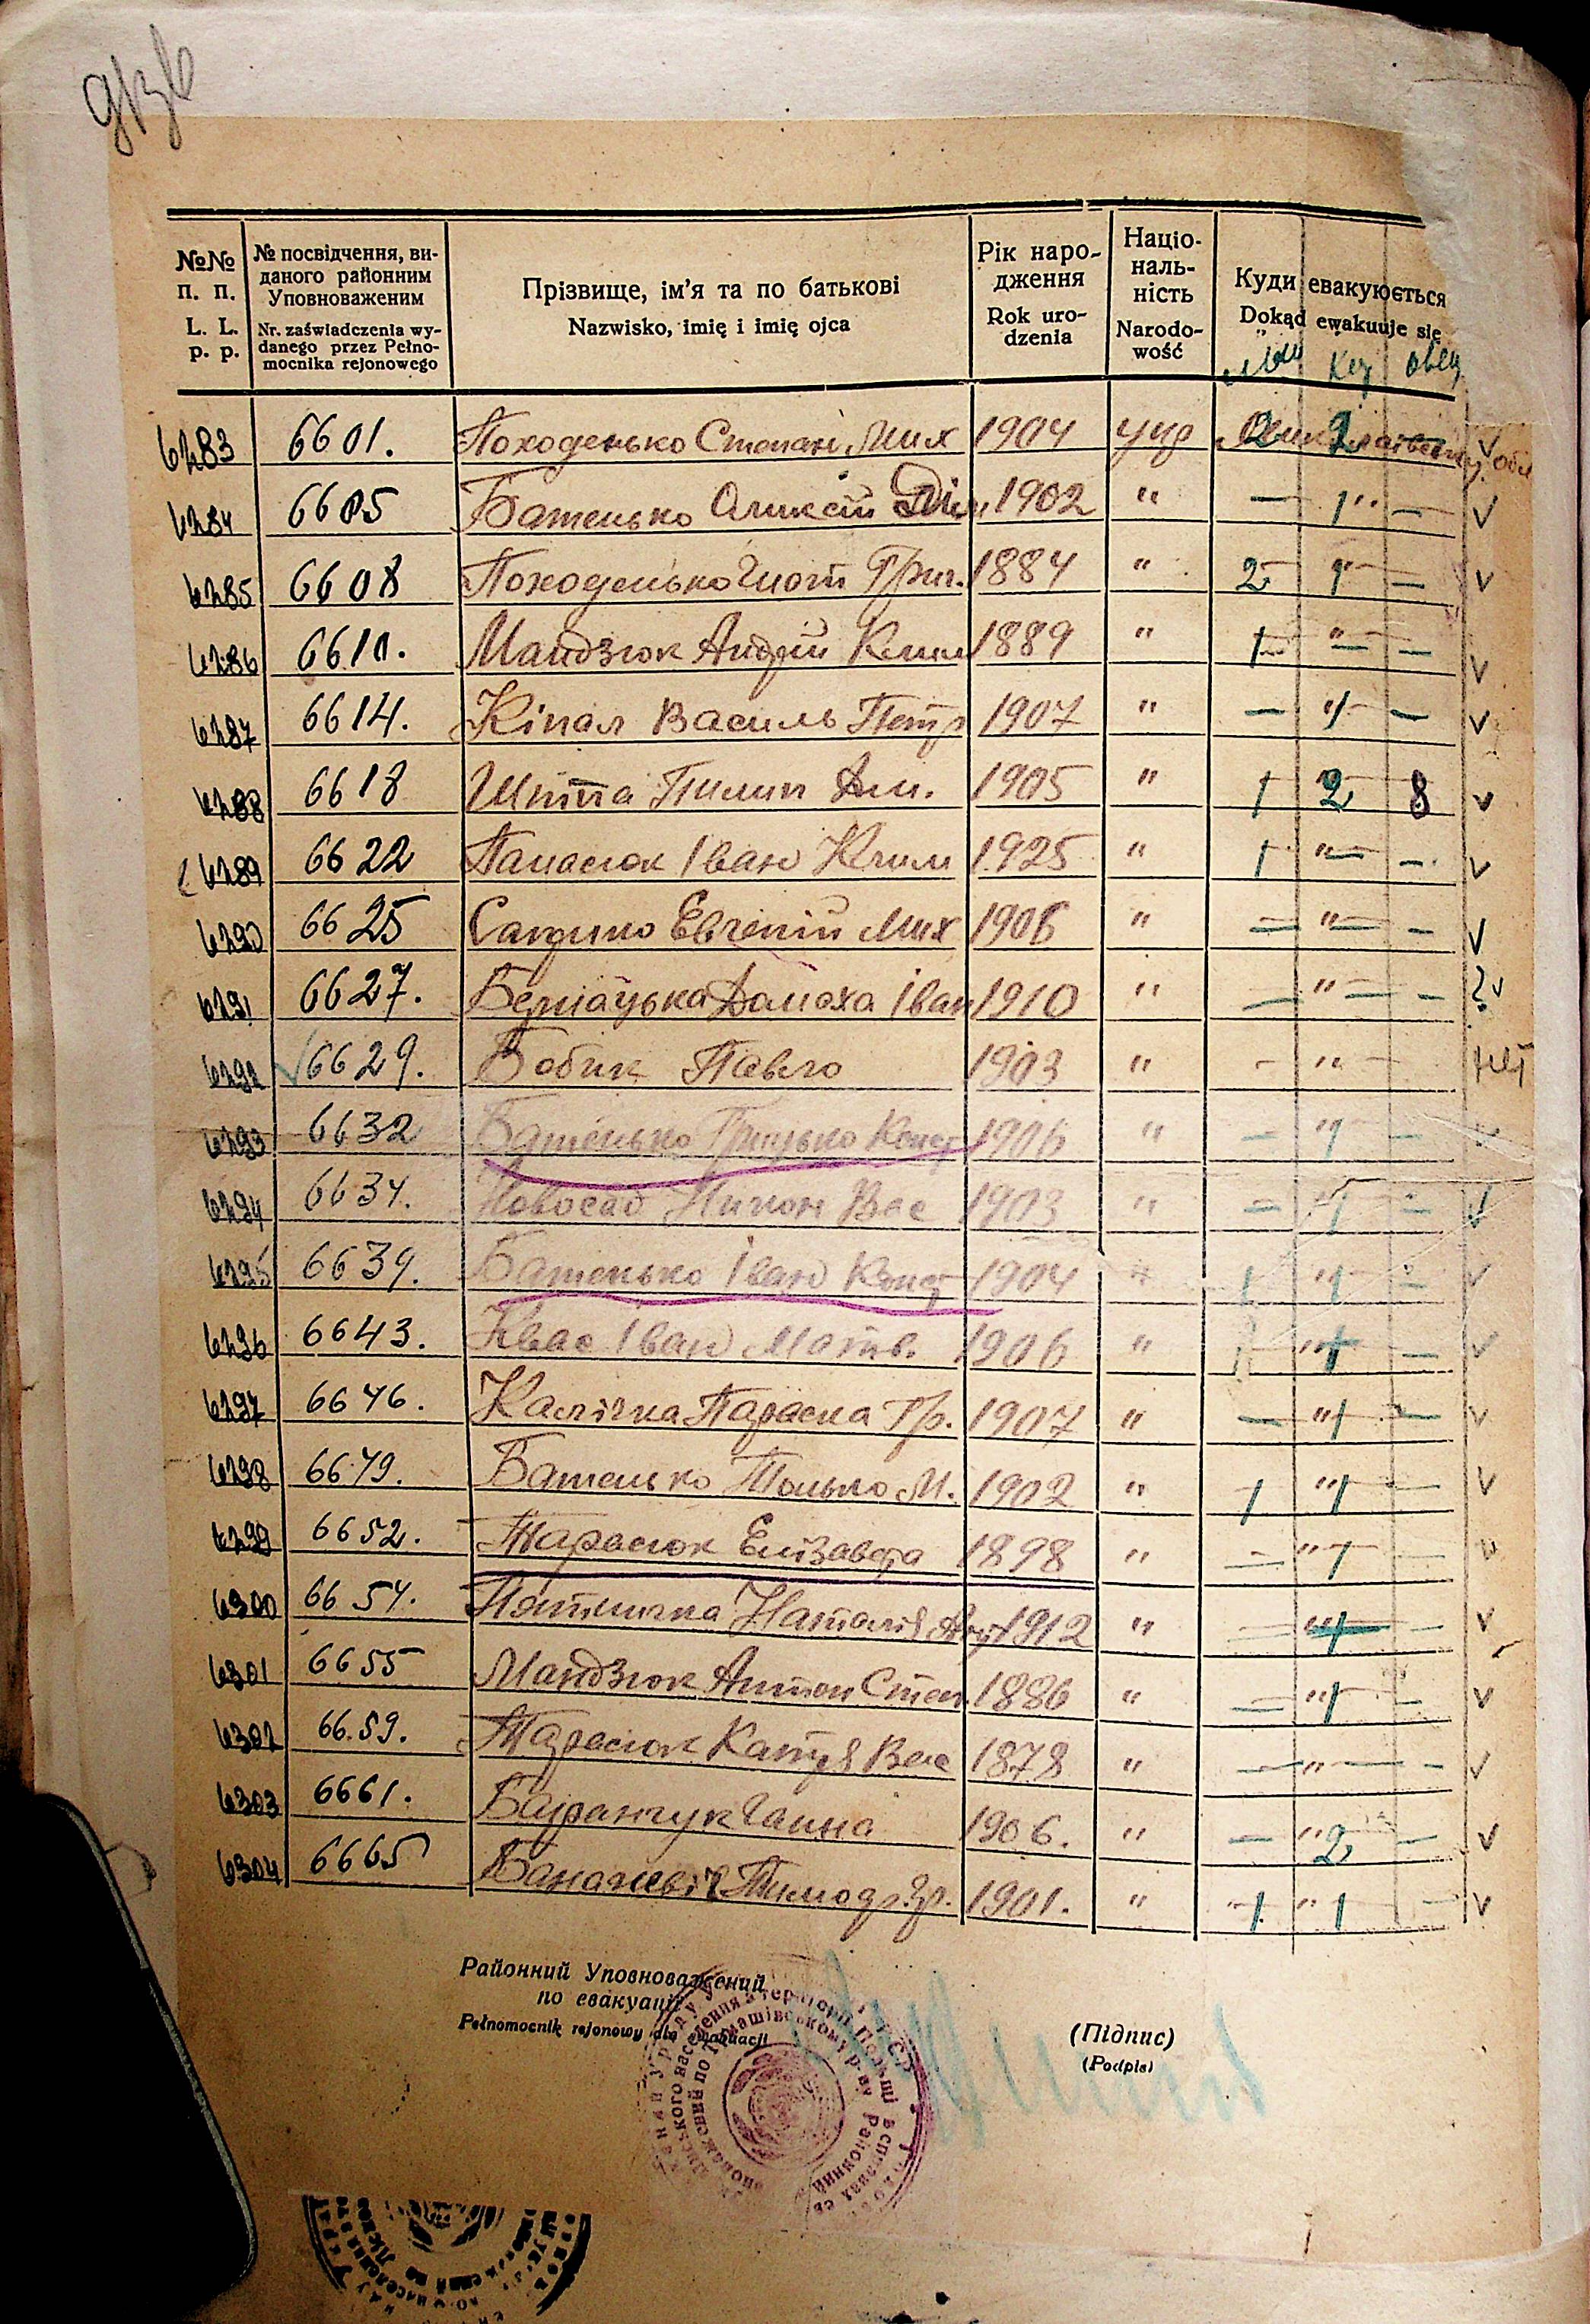 №№ п. п. L. L. p. p.
№ посвідчення, виданого районним Уповноваженим
Nr. zaświadczenia wydanego przez Pełnomocnika rejonowego
Прізвище, ім'я та по батькові
Nazwisko, imię i imię ojca
Рік народження
Rok urodzenia
Національність
Narodowość
Куди евакуюється
Dokąd ewakuuje się
6283 6601. Походенько Степан Мих 1904 укр 2 2 v
6284 6605 Батенько Оликсій 1902 " — 1 " — v
6285 6608 Походенько Гнат Григ. 1884 " 2 1 — v
6286 6611. Мандзюк Андрій 1889 " 1 " — v
6287 6614. Кіпал Василь Петр 1907 " — " 1 — v
6288 6618 Шпіта Пилип 1905 " 1 " 2 8 v
6289 6622 Панасюк Іван Клим 1925 " 1 " — — v
6290 6625 Євгеній Мих 1906 " — " — — v
6291 6627. Домаха Іван 1910 " — " — — ? v
6292 6629. Бобик Павло 1903 " - " - нет
6293 6632 Батенько Грицько Конст 1906 " — " 1 — v
6294 6634. Новосад Никон Вас 1903 " — " 1 — v
6295 6639. Батенько Іван Конст 1904 " 1 " 1 — v
6296 6643. Квас Іван Матв. 1906 " " 1 — v
6297 6646. Калічка Параска Гр. 1907 " — " 1 — v
6298 6649. Батенько Тонько М. 1902 " 1 " 1 — v
6299 6652. Тарасюк Елізавета 1898 " — " 1 — v
6300 6654. Наталія 1912 " — " 1 v
6301 6655 Мандзюк Антон Степ. 1886 " — " 1 — v
6302 6659. Тарасюк Катря Вас 1878 " — " — — v
6303 6661. Ганна 1906. " — " 2 — v
6304 6665 Гр. 1901. " 1 " 1 — v
Районний Уповноважений
по евакуації
Pełnomocnik rejonowy dla ewakuacji
(Підпис)
(Podpis)